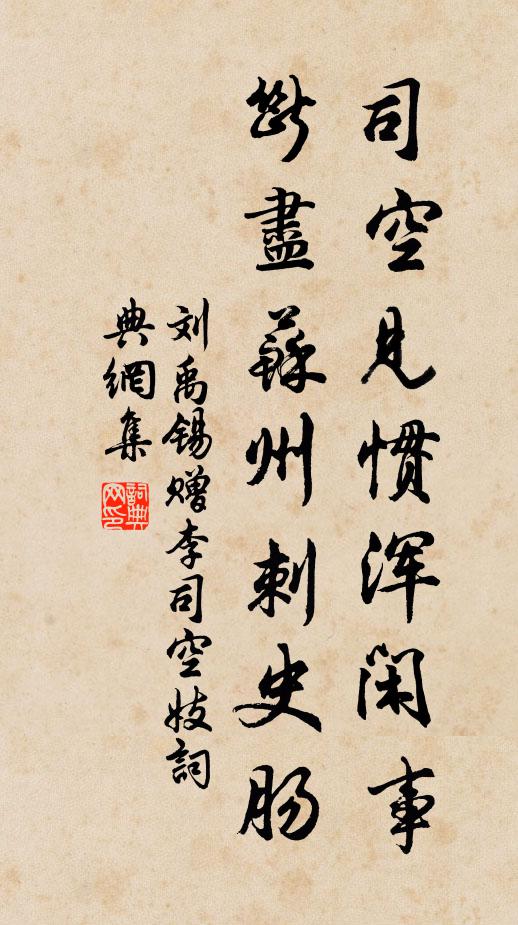 司空见惯浑闲事
断盡蘇州刺史肠
刘禹锡赠李司空妓詞
典網集
詞典网印